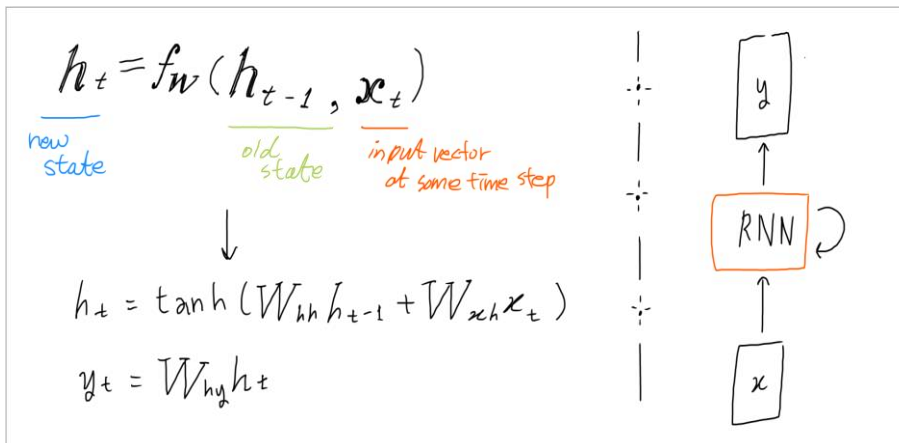 hₜ = f_W(hₜ₋₁, xₜ)
new
state
old
state
input vector
at some time step
hₜ = tanh(W_hh hₜ₋₁ + W_xh xₜ)
yₜ = W_hy hₜ
y
RNN
x